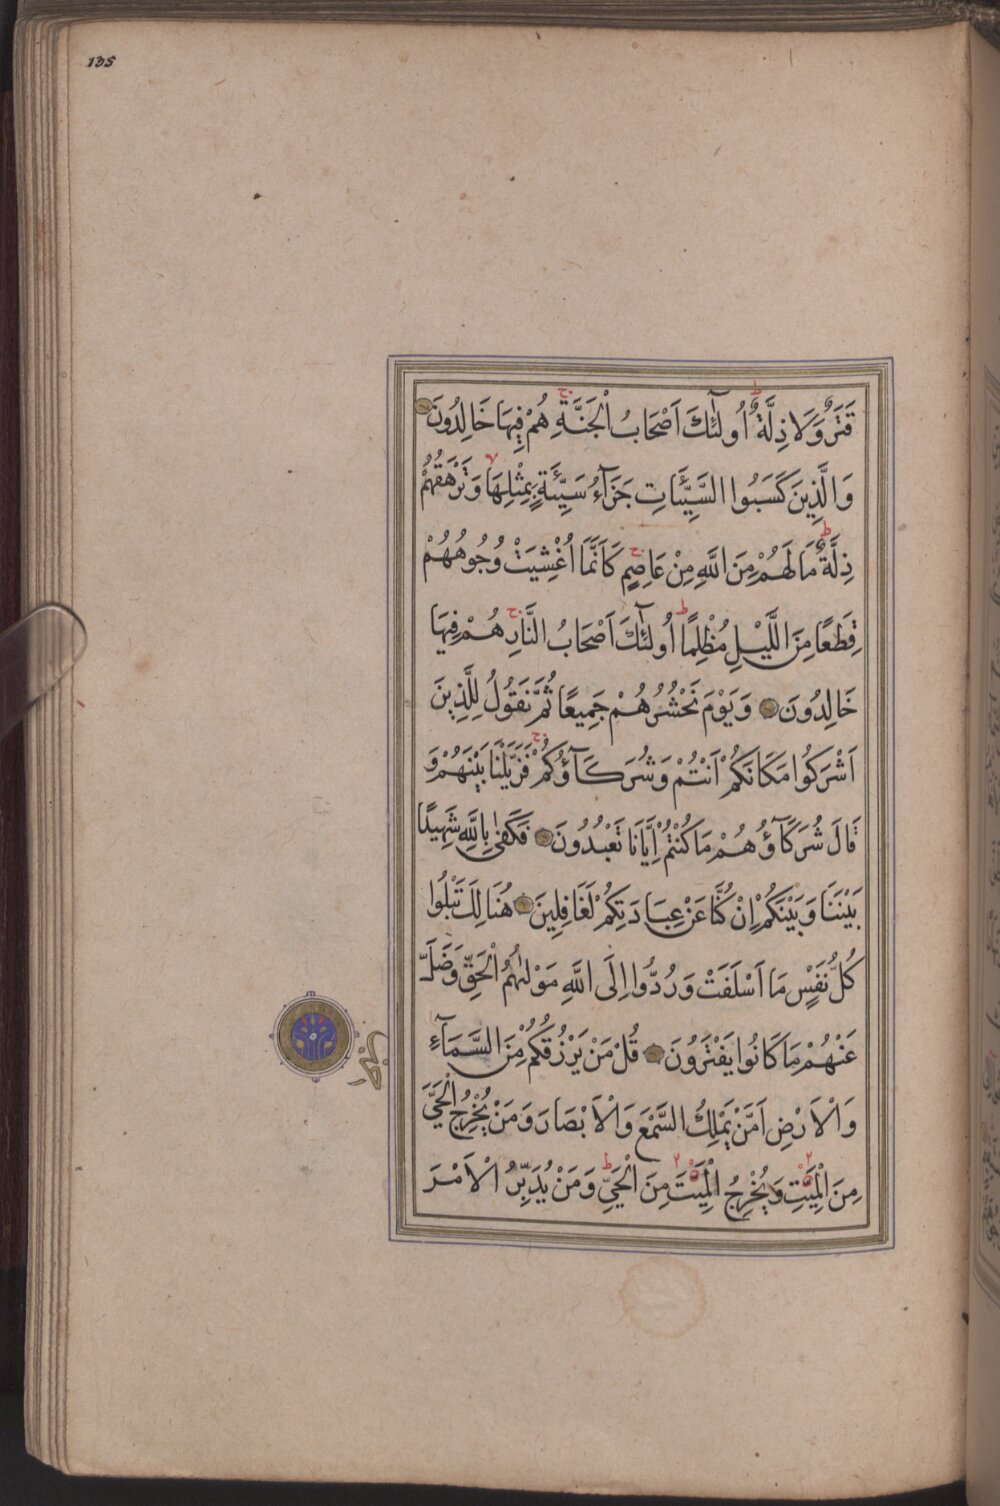 135
قَتَرٌ وَلَا ذِلَّةٌ اُولٰٓئِكَ اَصْحَابُ الْجَنَّةِ هُمْ فِيهَا خَالِدُونَ
وَالَّذِينَ كَسَبُوا السَّيِّئَاتِ جَزَآءُ سَيِّئَةٍ بِمِثْلِهَا وَتَرْهَقُهُمْ
ذِلَّةٌ مَا لَهُمْ مِنَ اللّٰهِ مِنْ عَاصِمٍ كَاَنَّمَا اُغْشِيَتْ وُجُوهُهُمْ
قِطَعًا مِنَ اللَّيْلِ مُظْلِمًا اُولٰٓئِكَ اَصْحَابُ النَّارِ هُمْ فِيهَا
خَالِدُونَ وَيَوْمَ نَحْشُرُهُمْ جَمِيعًا ثُمَّ نَقُولُ لِلَّذِينَ
اَشْرَكُوا مَكَانَكُمْ اَنْتُمْ وَشُرَكَآؤُكُمْ فَزَيَّلْنَا بَيْنَهُمْ وَ
قَالَ شُرَكَآؤُهُمْ مَا كُنْتُمْ اِيَّانَا تَعْبُدُونَ فَكَفٰى بِاللّٰهِ شَهِيدًا
بَيْنَنَا وَبَيْنَكُمْ اِنْ كُنَّا عَنْ عِبَادَتِكُمْ لَغَافِلِينَ هُنَالِكَ تَبْلُوا
كُلُّ نَفْسٍ مَا اَسْلَفَتْ وَرُدُّوا اِلَى اللّٰهِ مَوْلٰيهُمُ الْحَقِّ وَضَلَّ
عَنْهُمْ مَا كَانُوا يَفْتَرُونَ قُلْ مَنْ يَرْزُقُكُمْ مِنَ السَّمَآءِ
وَالْاَرْضِ اَمَّنْ يَمْلِكُ السَّمْعَ وَالْاَبْصَارَ وَمَنْ يُخْرِجُ الْحَيَّ
مِنَ الْمَيِّتِ وَيُخْرِجُ الْمَيِّتَ مِنَ الْحَيِّ وَمَنْ يُدَبِّرُ الْاَمْرَ